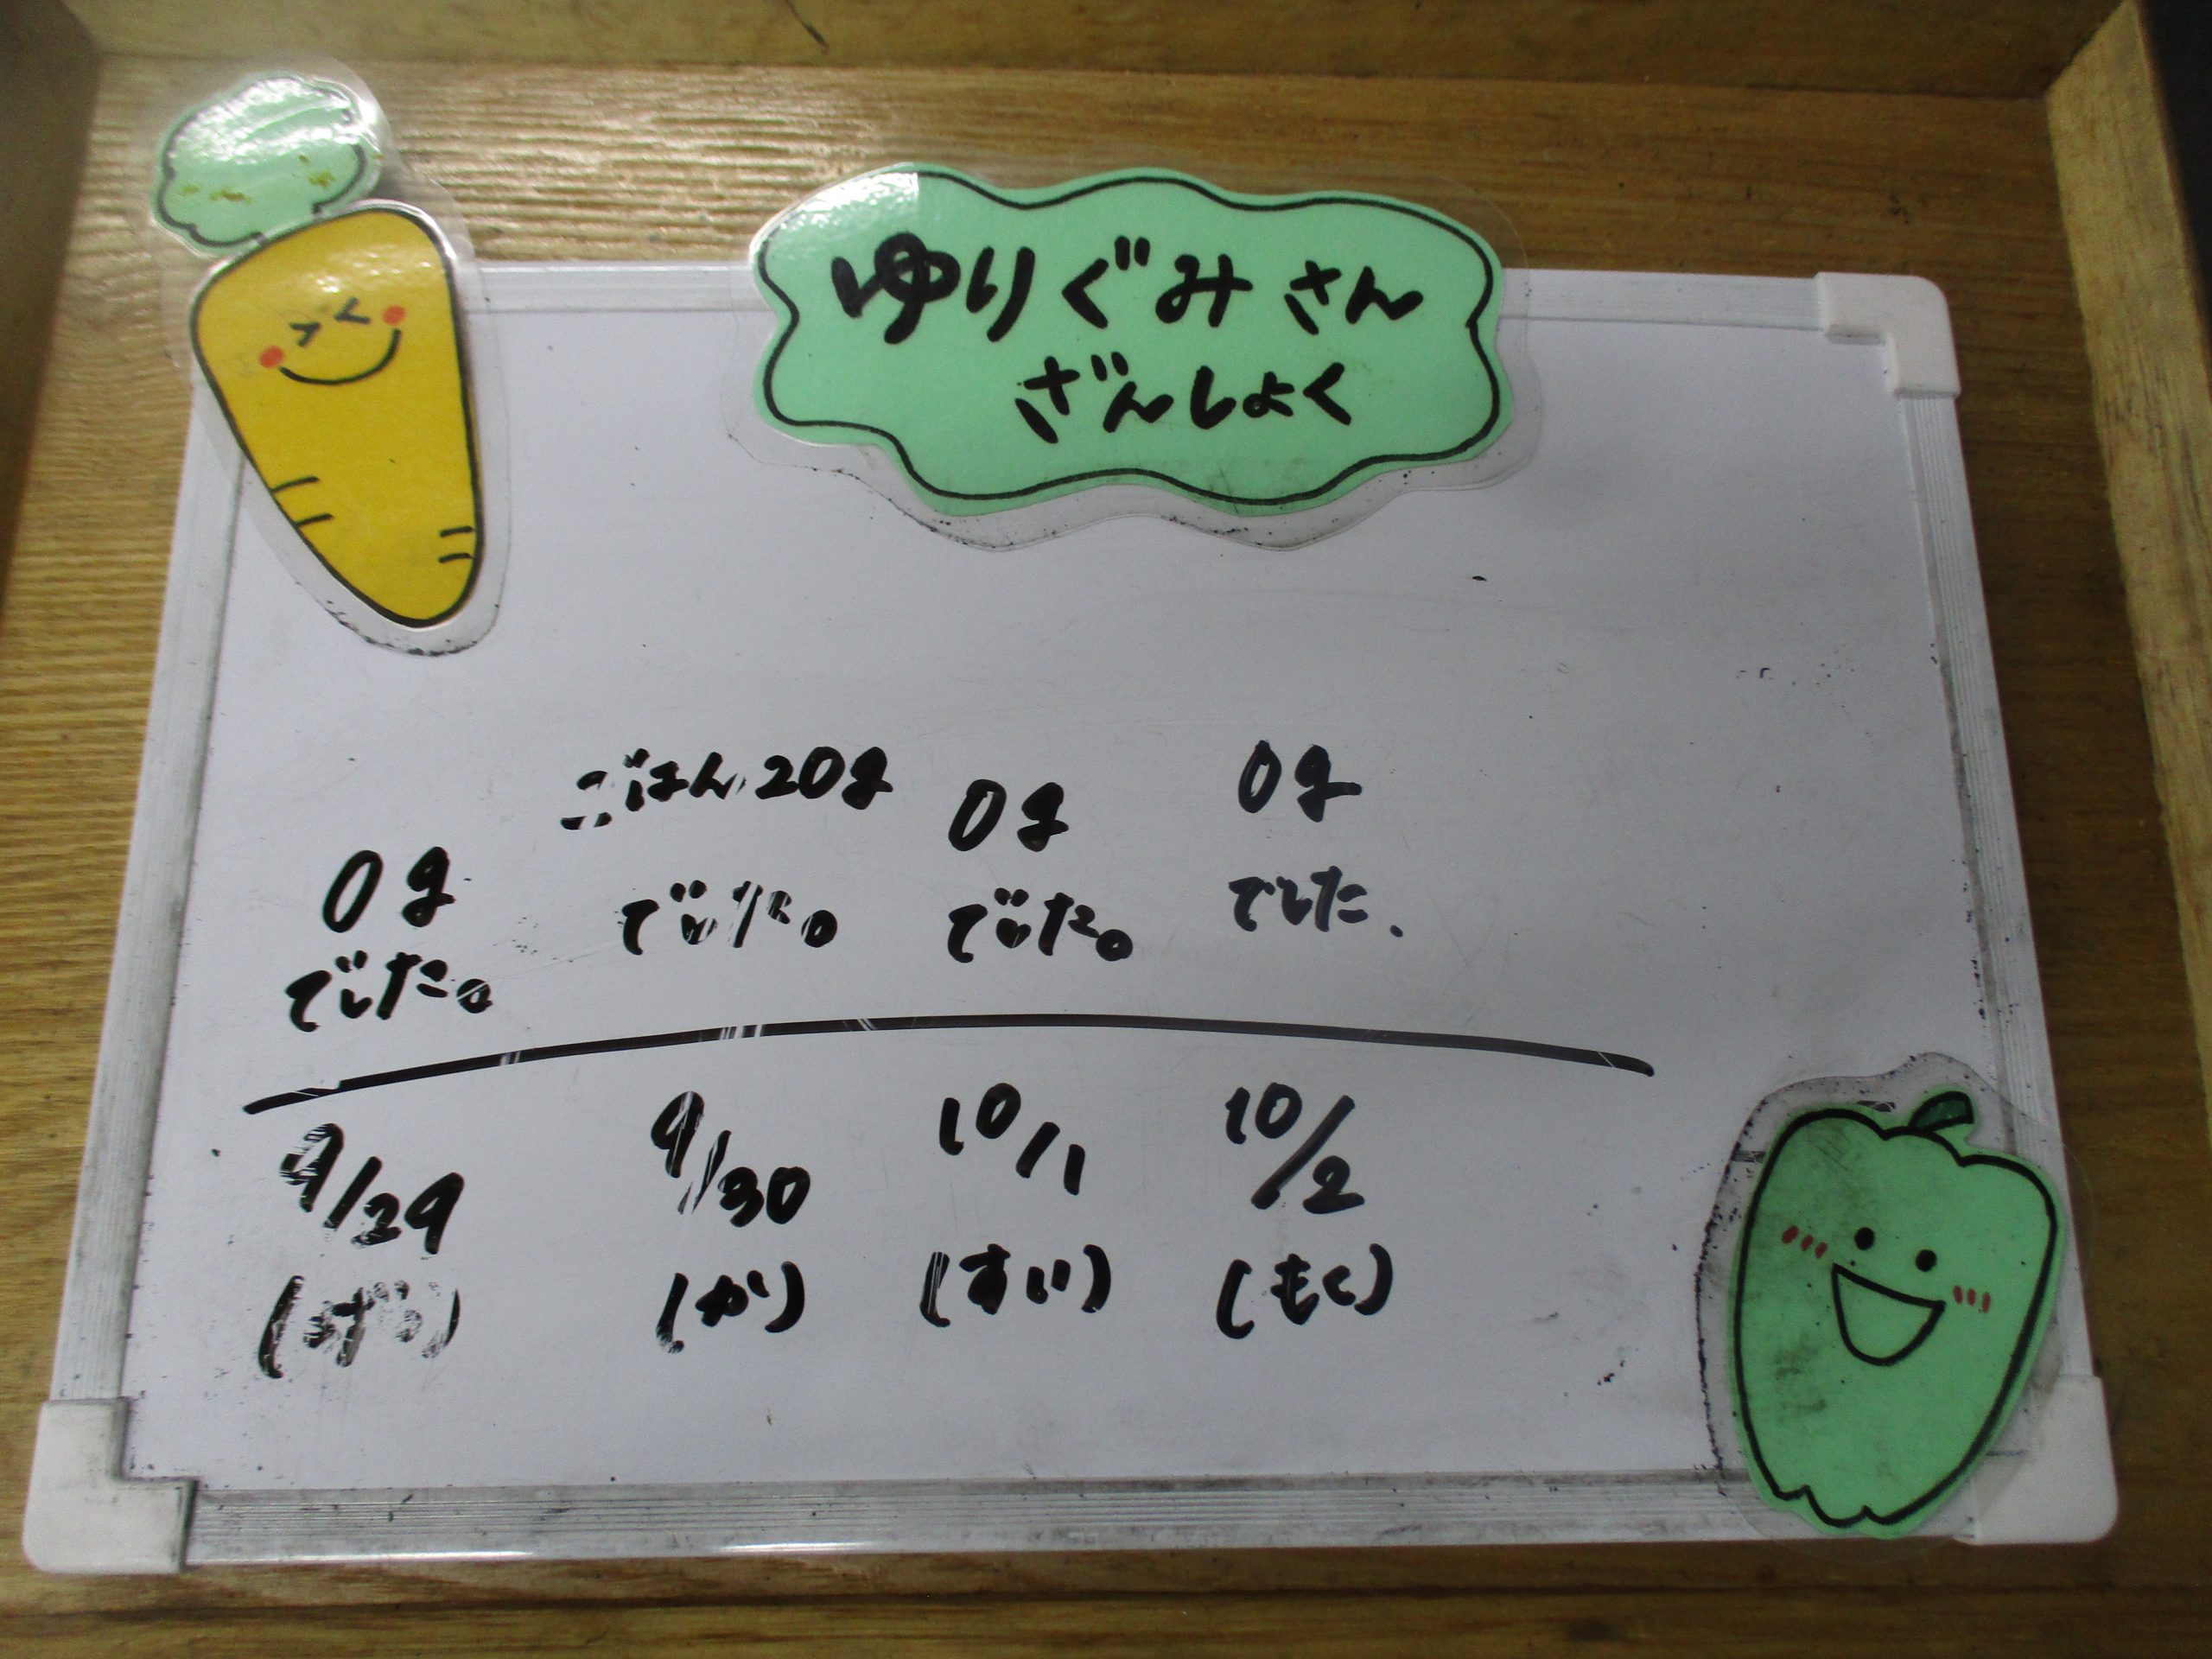 ゆりぐみさん
ざんしょく
0g
でした。
ごはん20g
でした。
0g
でした。
0g
でした.
9/29
(げつ)
9/30
(か)
10/1
(すい)
10/2
(もく)